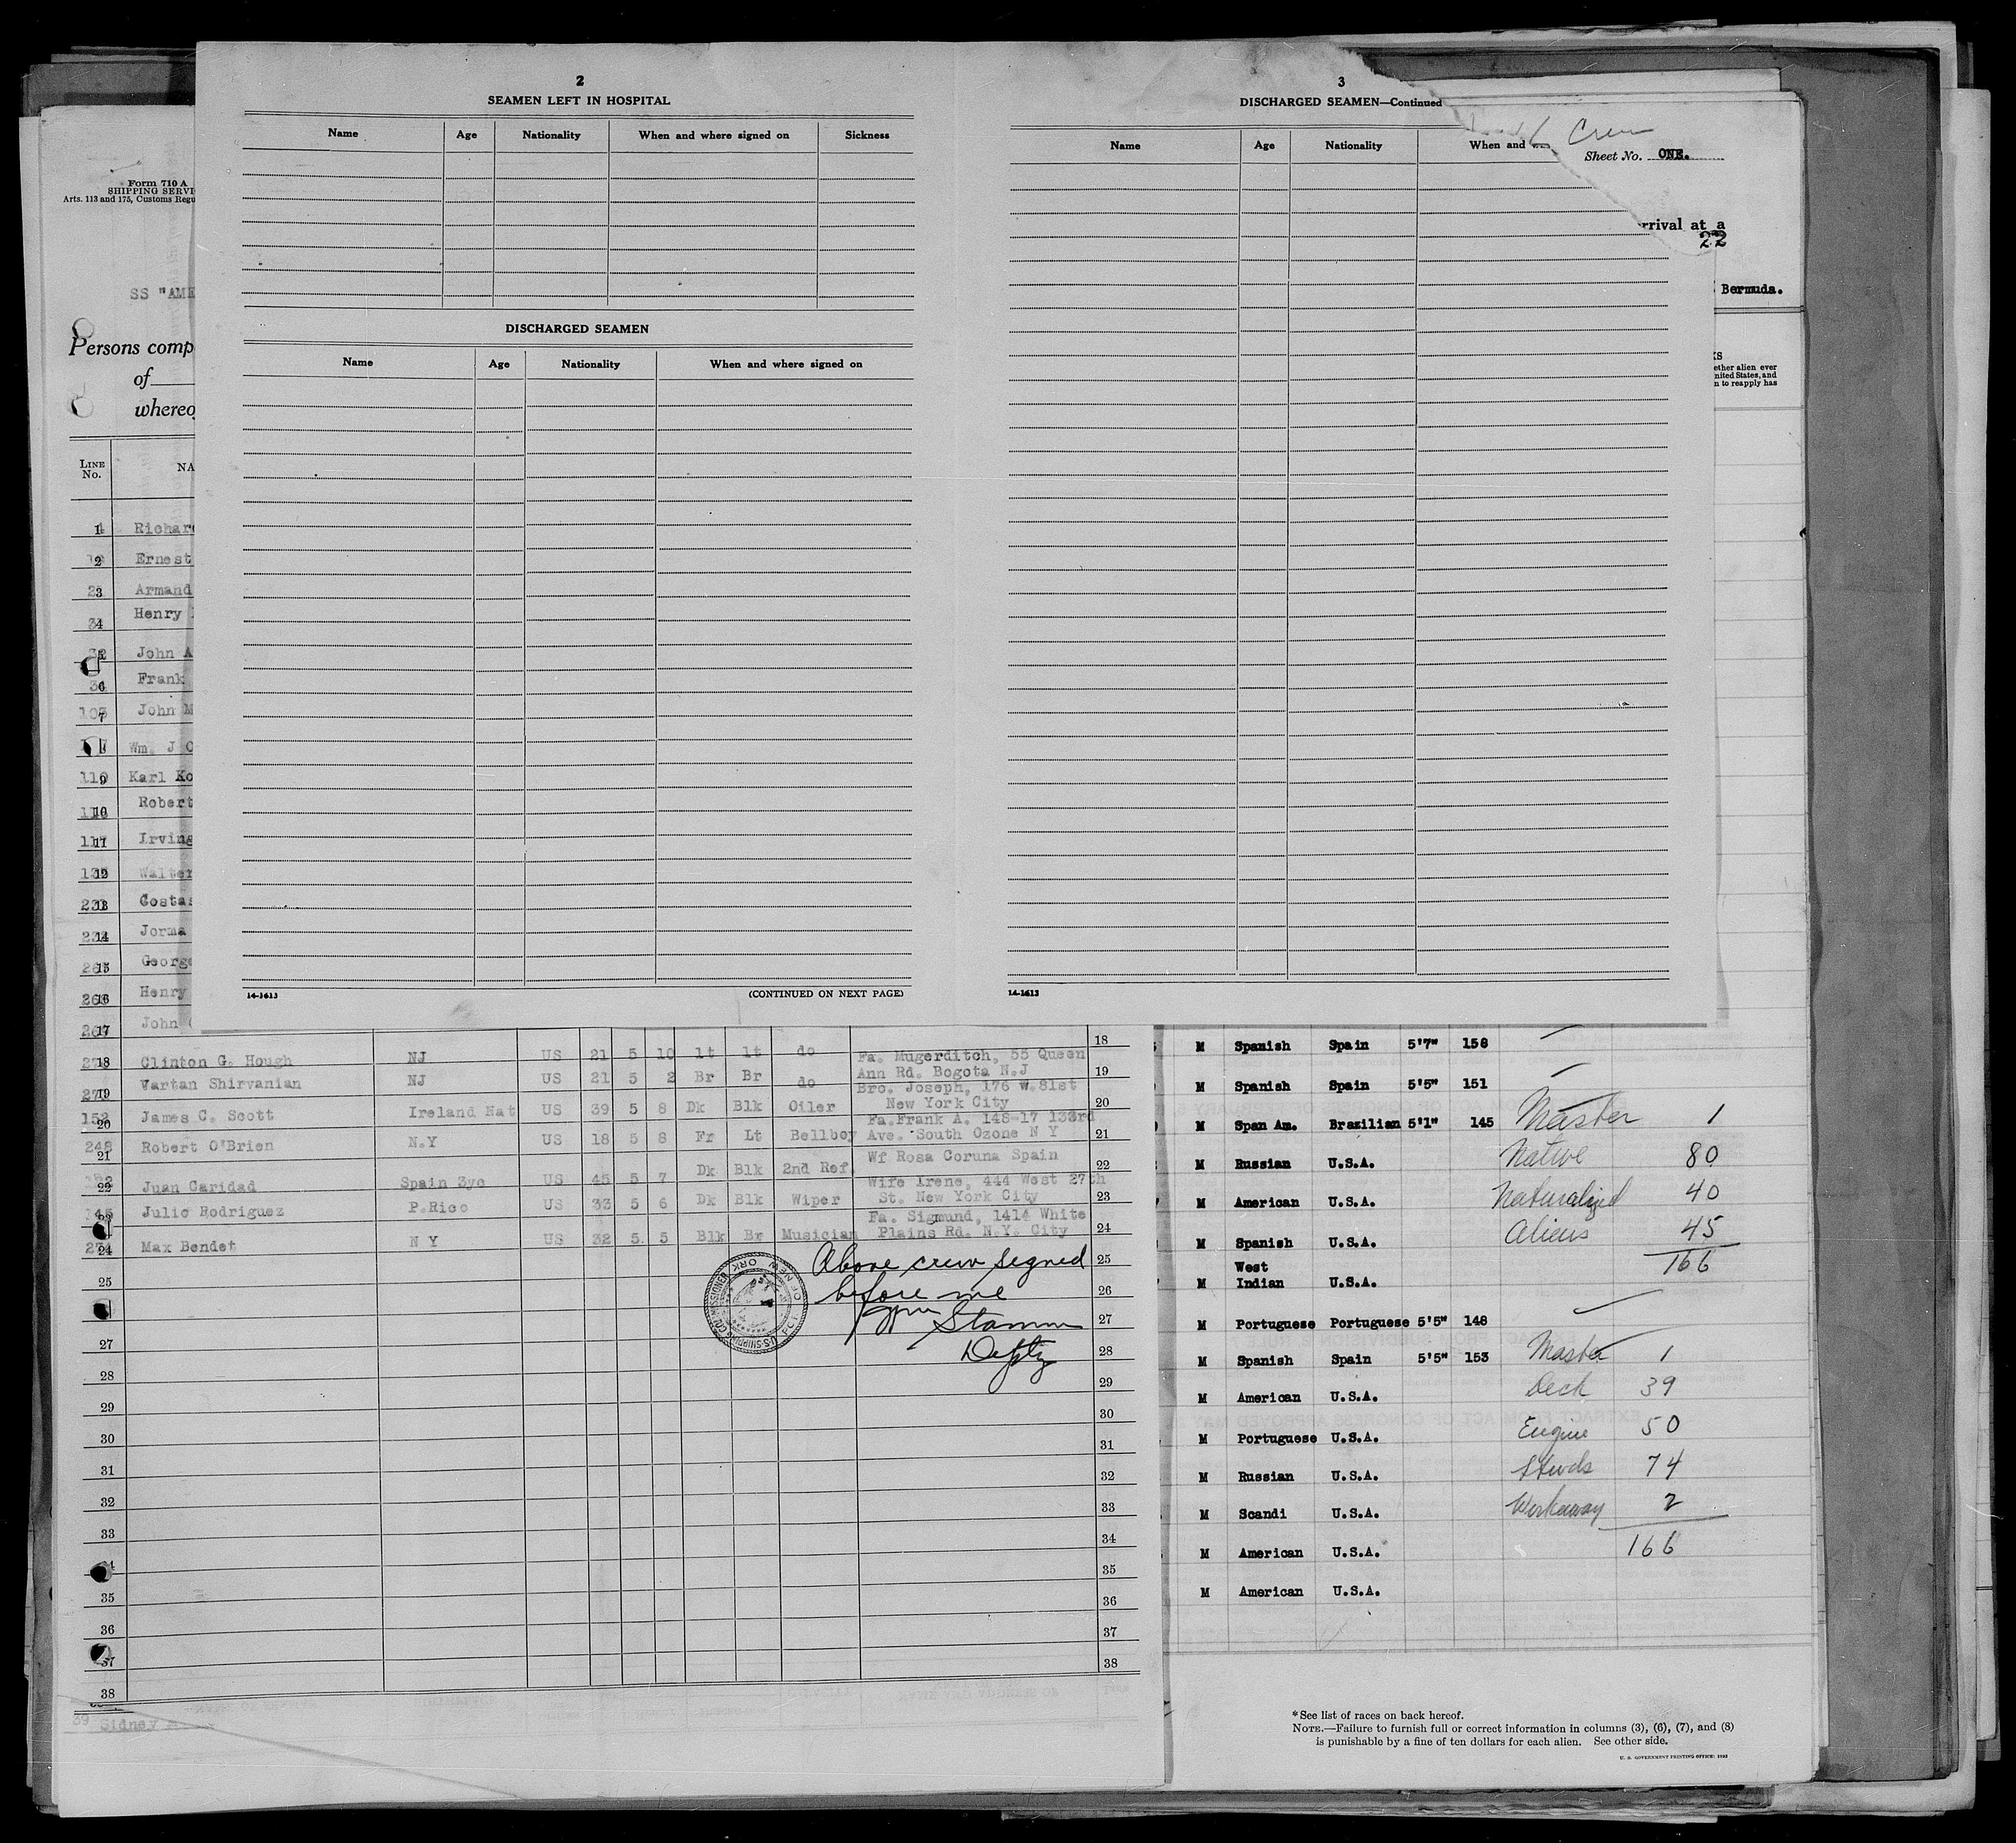 2
SEAMEN LEFT IN HOSPITAL
Name Age Nationality When and where signed on Sickness
DISCHARGED SEAMEN
Name Age Nationality When and where signed on
14-1613 (CONTINUED ON NEXT PAGE)
3
DISCHARGED SEAMEN—Continued
Name Age Nationality When and
14-1613
Crew
Sheet No. ONE.
rrival at a
22
Bermuda.
ether alien ever
nited States, and
n to reapply has
Form 710 A
SHIPPING SERVI
Arts. 113 and 175, Customs Regu
SS "AME
Persons comp
of
whereof
LINE No. NA
1 Richard
2 Ernest
3 Armand
4 Henry
John A
6 Frank
7 John M
Wm. J C
9 Karl Ko
10 Robert
11 Irving
12 Walter
13 Costas
14 Jorma
15 George
16 Henry
17 John
18 Clinton G. Hough NJ US 21 5 10 lt lt do 18
Fa. Mugerditch, 55 Queen
19 Vartan Shirvanian NJ US 21 5 2 Br Br do Ann Rd. Bogota N.J 19
Bro. Joseph, 176 W.81st
20 James C. Scott Ireland Nat US 39 5 8 Dk Blk Oiler New York City 20
Fa.Frank A. 148-17 133rd
21 Robert O'Brien N.Y US 18 5 8 Fr Lt Bellboy Ave. South Ozone N Y 21
Wf Rosa Coruna Spain
22 Juan Caridad Spain 3yc US 45 5 7 Dk Blk 2nd Ref. 22
Wife Irene, 444 West 27th
Julio Rodriguez P.Rico US 33 5 6 Dk Blk Wiper St. New York City 23
Fa. Sigmund, 1414 White
24 Max Bendet N Y US 32 5 5 Blk Br Musician Plains Rd. N.Y. City 24
Above crew signed
before me
Stamm
Depty
25 25
26
27 27
28 28
29 29
30 30
31 31
32 32
33 33
34
35 35
36 36
37 37
38 38
39 Sidney
M Spanish Spain 5'7" 158
M Spanish Spain 5'5" 151
M Span Am. Brazilian 5'1" 145 Master 1
M Russian U.S.A. Native 80
M American U.S.A. Naturalized 40
M Spanish U.S.A. Aliens 45
166
M West Indian U.S.A.
M Portuguese Portuguese 5'5" 148
M Spanish Spain 5'5" 153 Master 1
M American U.S.A. Deck 39
M Portuguese U.S.A. Engine 50
M Russian U.S.A. Stwds 74
M Scandi U.S.A. Workaway 2
M American U.S.A. 166
M American U.S.A.
*See list of races on back hereof.
NOTE.—Failure to furnish full or correct information in columns (3), (6), (7), and (8)
is punishable by a fine of ten dollars for each alien. See other side.
U. S. GOVERNMENT PRINTING OFFICE: